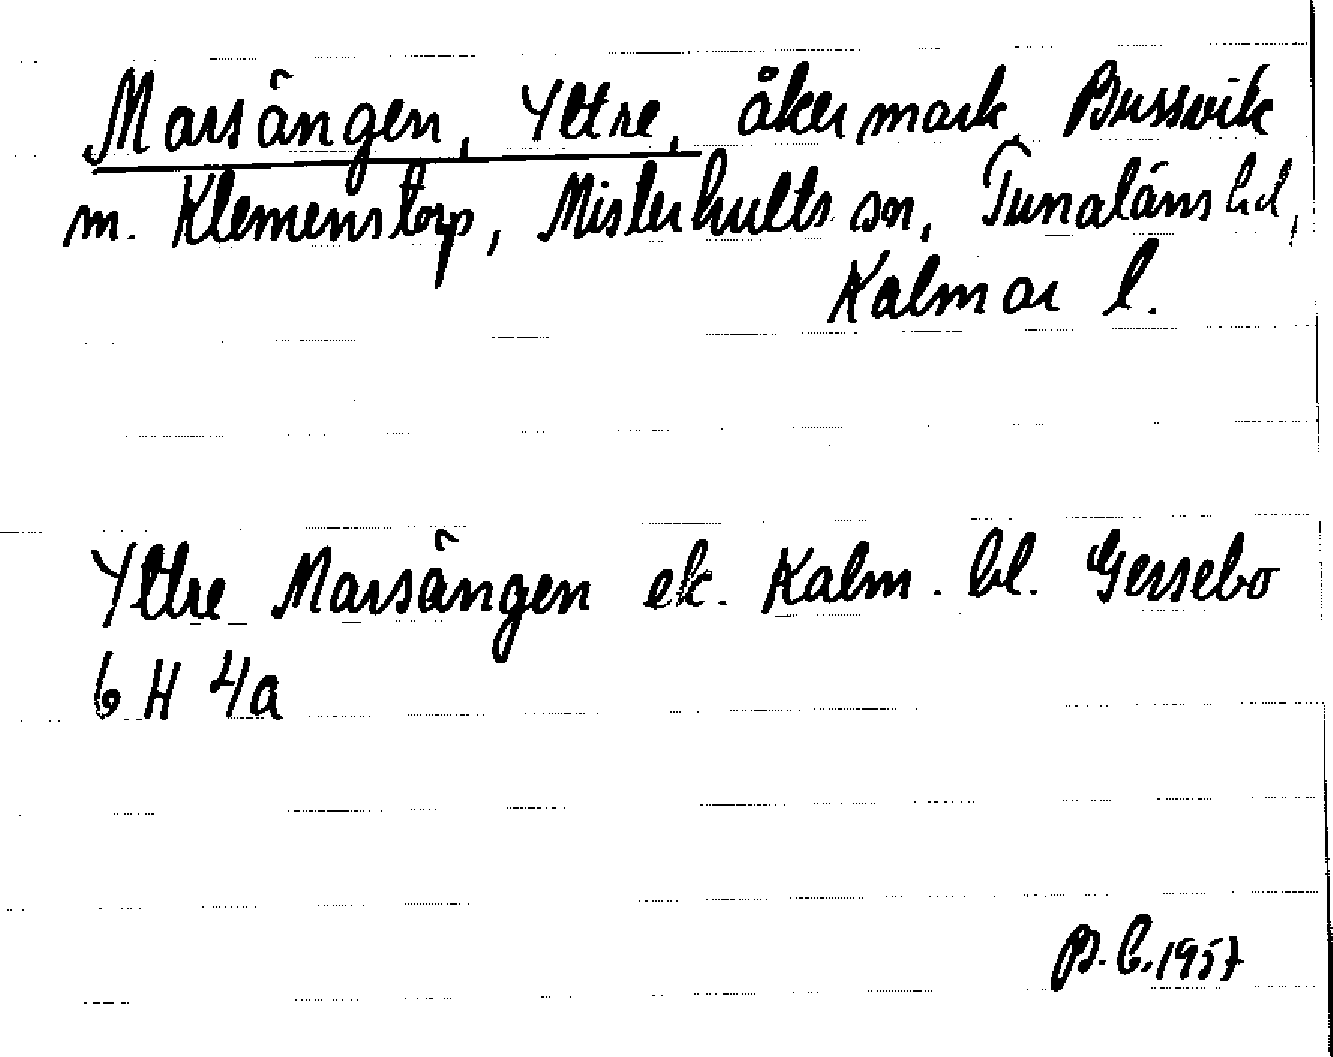 Marsängen, Yttre, åkermark, Bussvik
m. Klemenstorp, Misterhults sn, Tunaläns hd,
Kalmar l.
Yttre Marsängen ek. Kalm. bl. Gersebo
6 H 4a
B.C. 1957